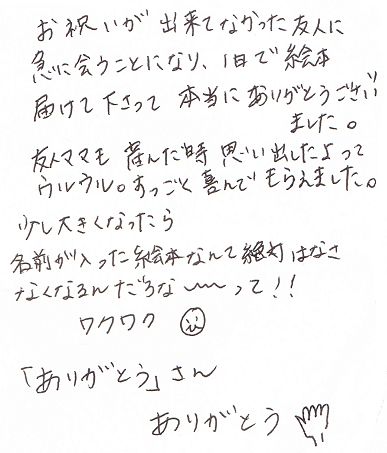 お祝いが出来てなかった友人に
急に会うことになり、1日で絵本
届けて下さって 本当にありがとうござい
ました。
友人ママも 読んだ時 思い出したよって
ウルウル。すっごく喜んでもらえました。
少し大きくなったら
名前が入った絵本なんて絶対はなさ
なくなるんだろな〜〜って!!
ワクワク
「ありがとう」さん
ありがとう